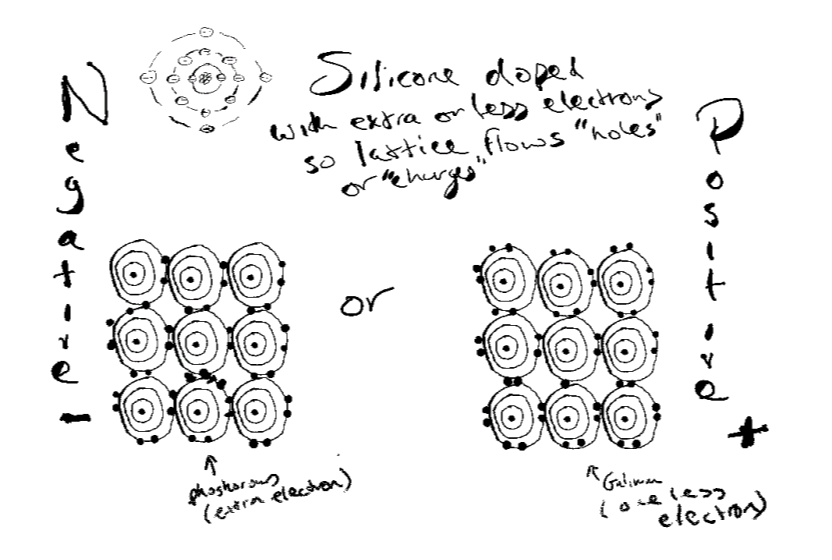 Negative -
Silicone doped
with extra or less electrons
so lattice flows "holes"
or "charges"
Positive +
or
phoshorous
(extra electron)
Galium
(one less
electron)